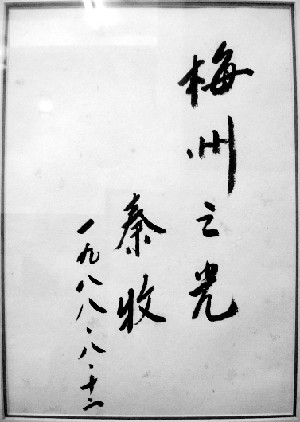 梅州之光
秦牧
一九八八·八·十六